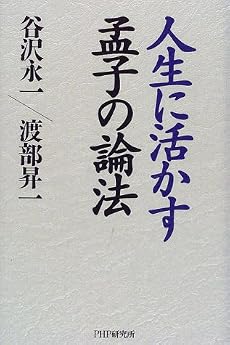 人生に活かす
孟子の論法
谷沢永一／渡部昇一
PHP研究所